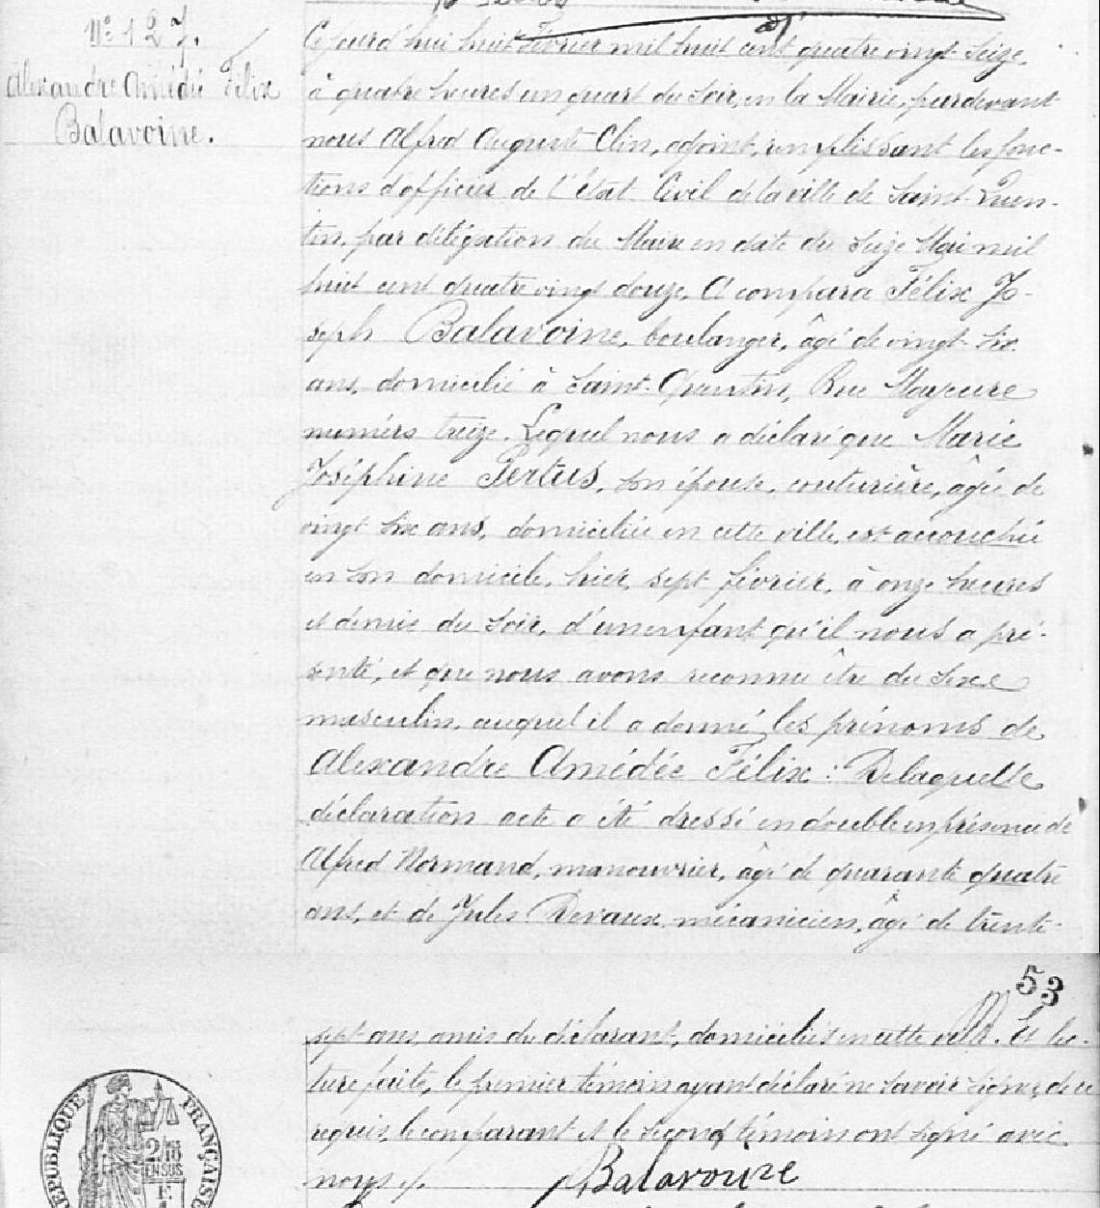 N° 127.
Alexandre Amédée Félix
Balavoine.
Cejourd'hui huit Février mil huit cent quatre vingt-seize,
à quatre heures un quart du soir, en la Mairie, pardevant
nous Alfred Auguste Clin, adjoint, remplissant les fonc-
tions d'officier de l'état Civil de la ville de Saint-Quen-
tin, par délégation du Maire en date du seize Mai mil
huit cent quatre vingt douze, A comparu Félix Jo-
seph Balavoine, boulanger, âgé de vingt-six
ans, domicilié à Saint-Quentin, Rue Mayeure
numéro treize. Lequel nous a déclaré que Marie
Joséphine Tertus, son épouse, couturière, âgée de
vingt six ans, domiciliée en cette ville, est accouchée
en son domicile, hier, sept février, à onze heures
et demie du soir, d'un enfant qu'il nous a pré-
senté, et que nous avons reconnu être du sexe
masculin, auquel il a donné les prénoms de
Alexandre Amédée Félix : De laquelle
déclaration acte a été dressé en double en présence de
Alfred Normand, manouvrier, âgé de quarante quatre
ans, et de Jules Devaux, mécanicien, âgé de trente-
53
sept ans, amis du déclarant, domiciliés en cette ville. Et lec-
ture faite, le premier témoin ayant déclaré ne savoir signer, de ce
requis, le comparant et le second témoin ont signé avec
nous ./.
Balavoine
RÉPUBLIQUE FRANÇAISE
2/10
EN SUS